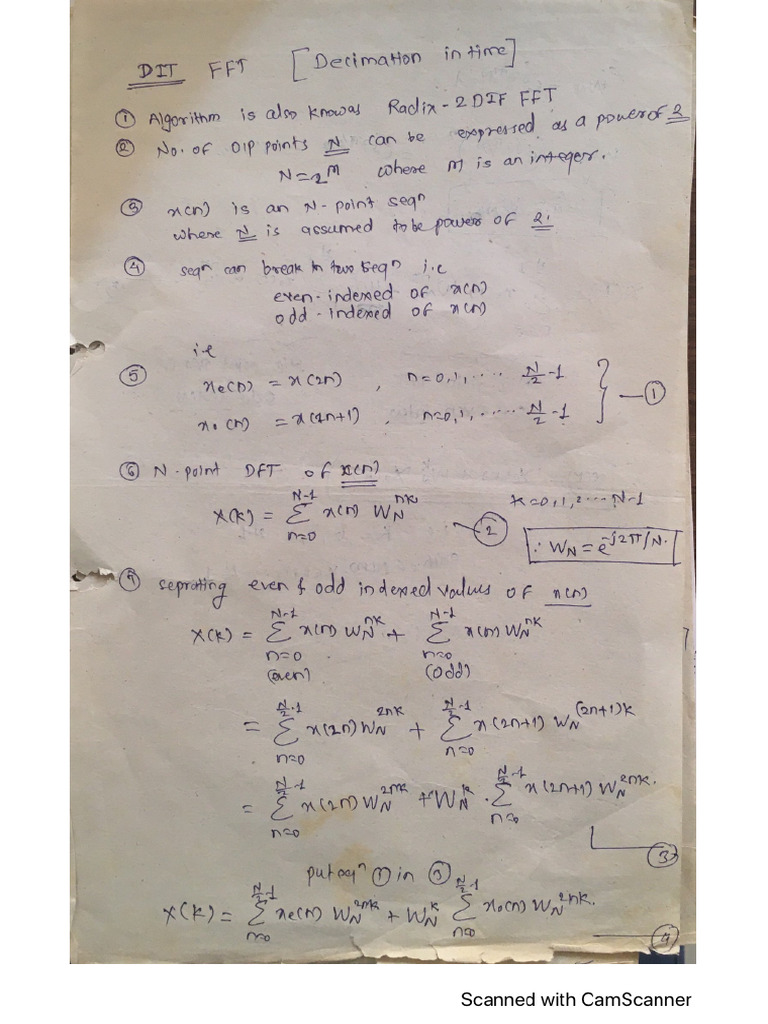 DIT FFT [Decimation in time]
① Algorithm is also knowas Radix-2 DIF FFT
② No. of O/P points N can be expressed as a power of 2
N=2^M where M is an integer.
③ x(n) is an N-point seqn
where N is assumed to be power of 2.
④ seqn can break in two seqn i.e
even-indexed of x(n)
odd-indexed of x(n)
i.e
⑤ xe(n) = x(2n) , n=0,1,..... N/2-1
xo(n) = x(2n+1) , n=0,1,...... N/2-1 } —①
⑥ N-point DFT of x(n)
X(k) = Σ_{n=0}^{N-1} x(n) W_N^{nk} —② k=0,1,2...N-1
∵ W_N = e^{-j2π/N}.
⑦ seprating even & odd indexed values of x(n)
X(k) = Σ_{n=0}^{N-1} x(n) W_N^{nk} + Σ_{n=0}^{N-1} x(n) W_N^{nk}
(even) (odd)
= Σ_{n=0}^{N/2-1} x(2n) W_N^{2nk} + Σ_{n=0}^{N/2-1} x(2n+1) W_N^{(2n+1)k}
= Σ_{n=0}^{N/2-1} x(2n) W_N^{2nk} + W_N^k . Σ_{n=0}^{N/2-1} x(2n+1) W_N^{2nk}.
③
put eqn ① in ③
X(k) = Σ_{n=0}^{N/2-1} xe(n) W_N^{2nk} + W_N^k Σ_{n=0}^{N/2-1} xo(n) W_N^{2nk}.
—④
Scanned with CamScanner